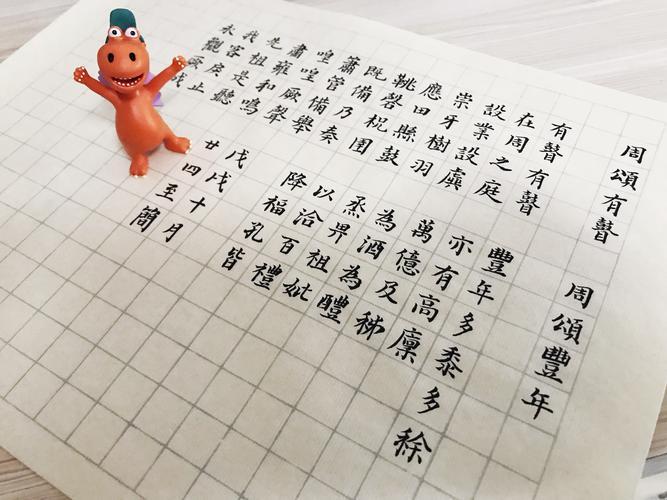 周頌有瞽
有瞽有瞽
在周之庭
設業設虡
崇牙樹羽
應田縣鼓
鞉磬柷圉
既備乃奏
蕭管備舉
喤喤厥聲
肅雍和鳴
先祖是聽
我客戾止
永觀厥成
周頌豐年
豐年多黍多稌
亦有高廩
萬億及秭
為酒為醴
烝畀祖妣
以洽百禮
降福孔皆
戊戌十月
廿四至簡